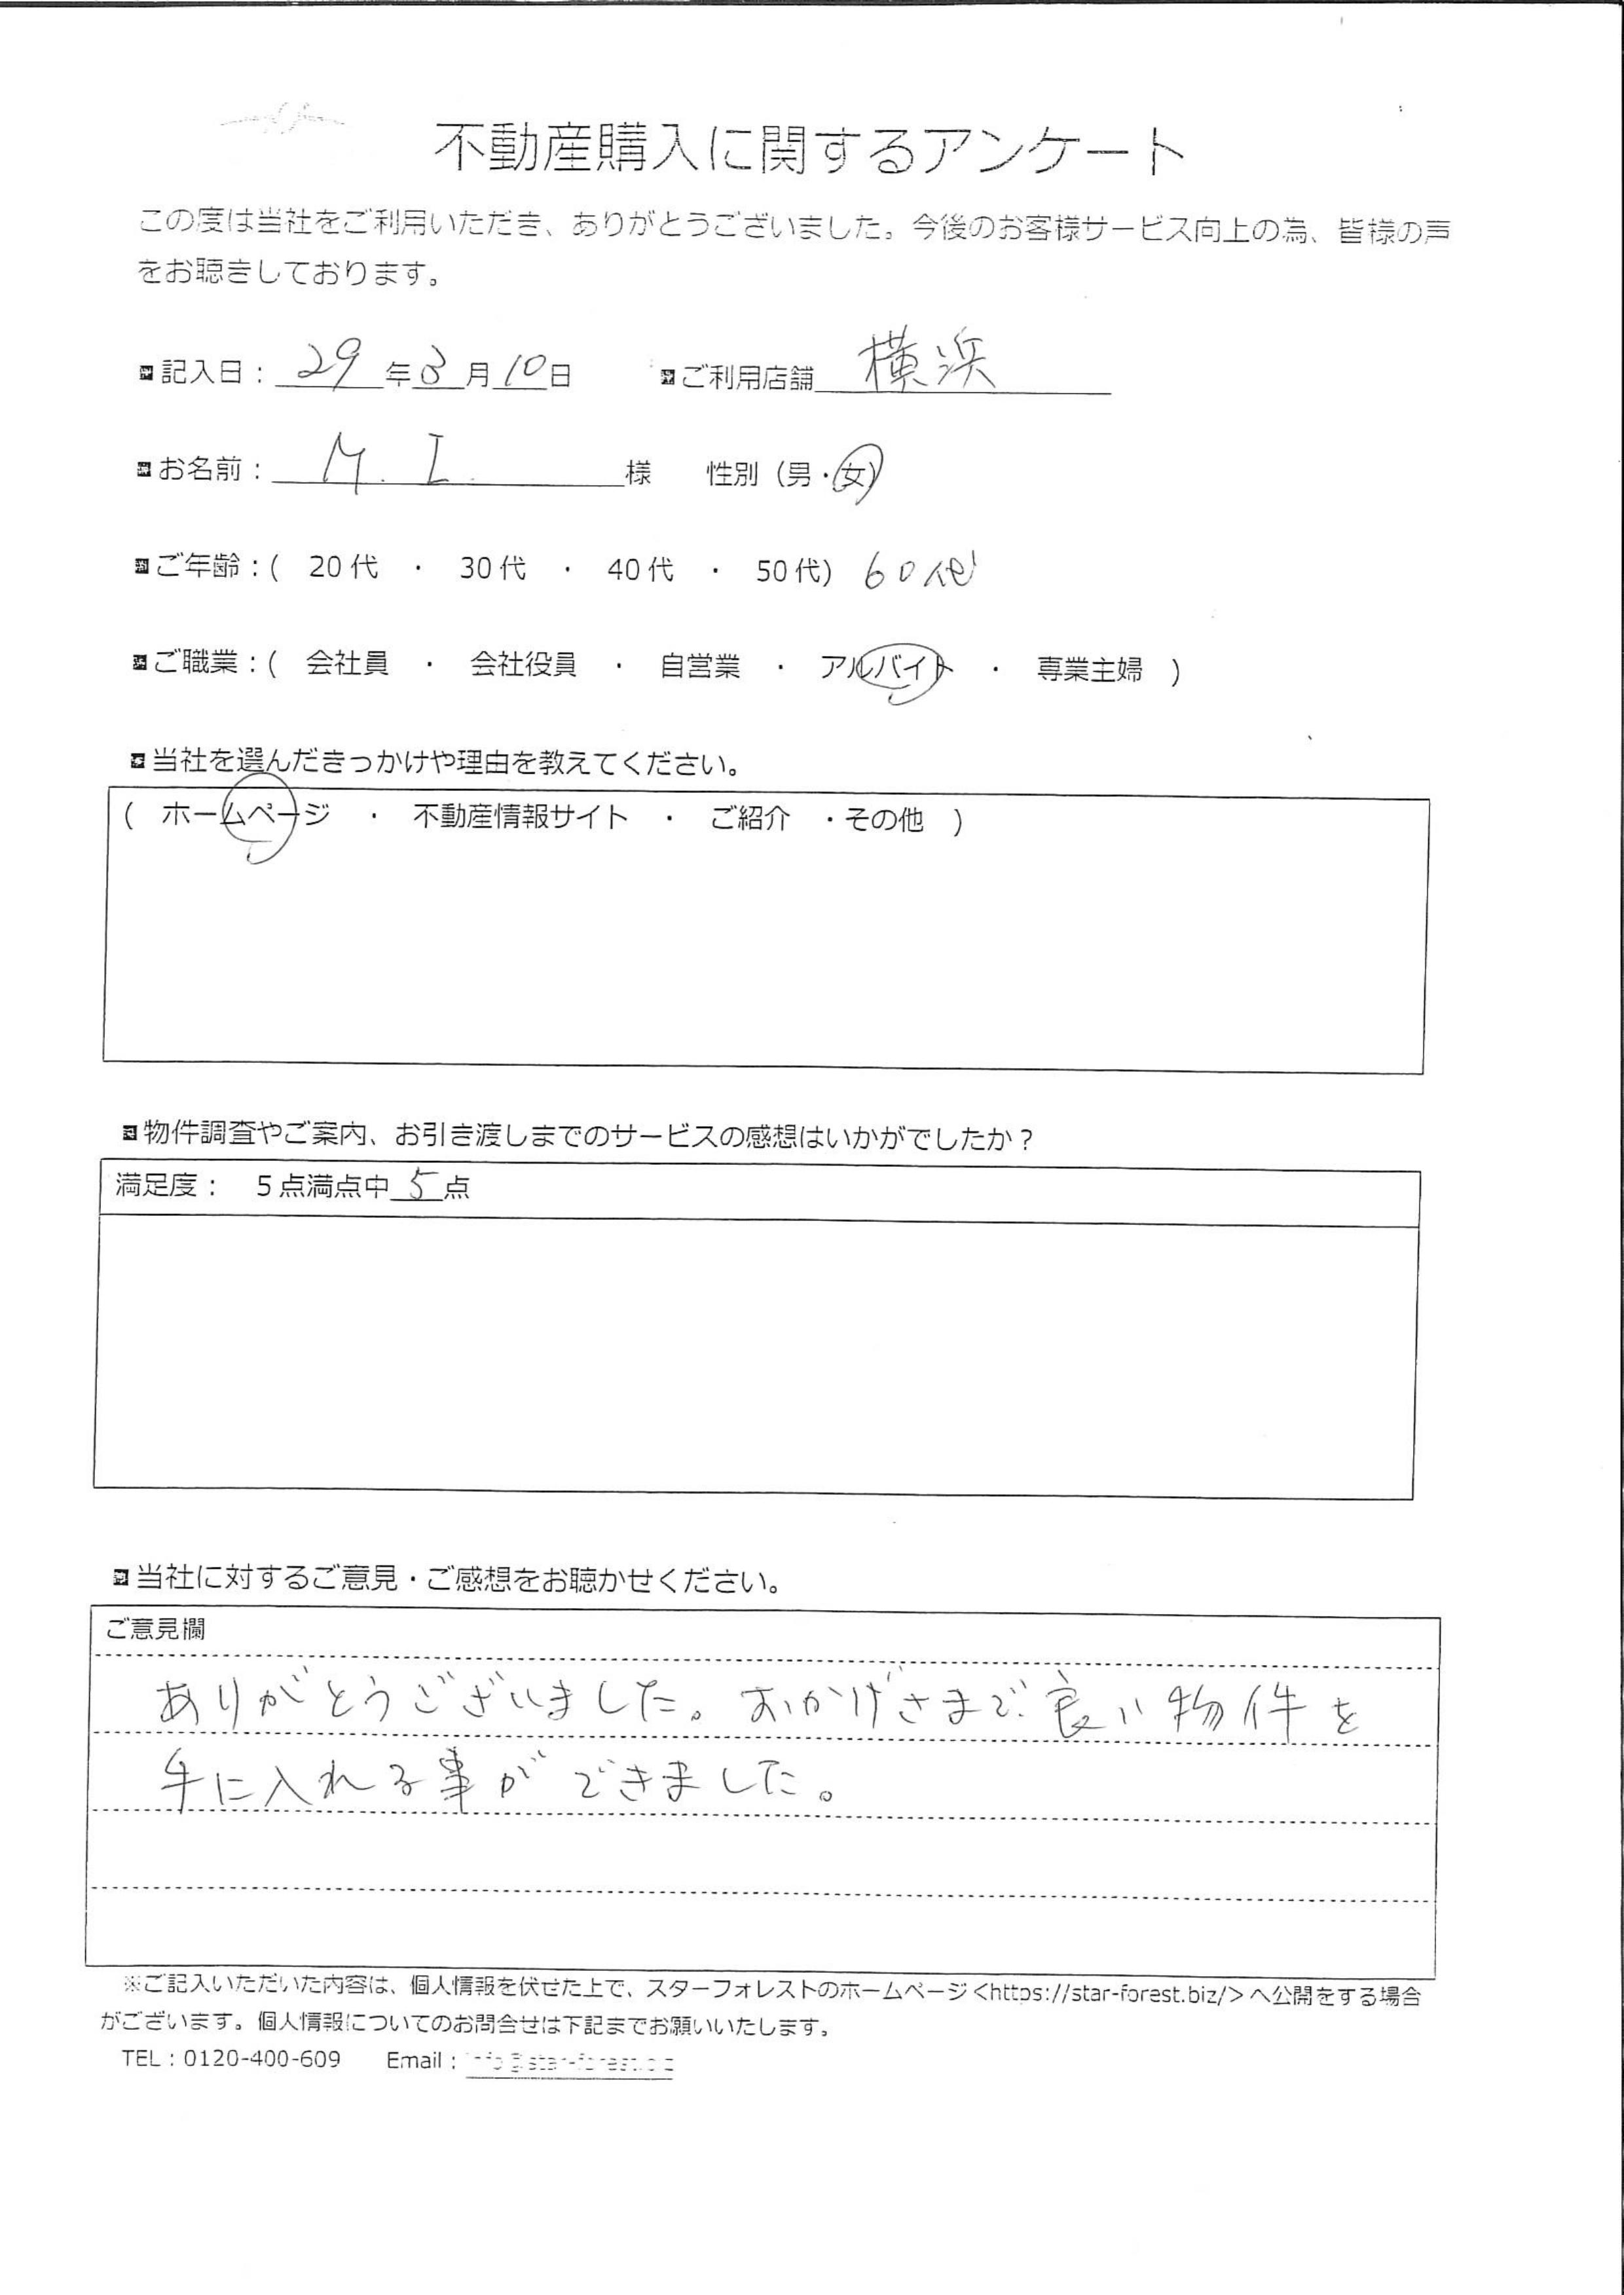 不動産購入に関するアンケート
この度は当社をご利用いただき、ありがとうございました。今後のお客様サービス向上の為、皆様の声
をお聴きしております。
記入日：29年3月10日　ご利用店舗 横浜
お名前：M. I. 様　性別（男・女）
ご年齢：(　20代　・　30代　・　40代　・　50代)　60代
ご職業：(　会社員　・　会社役員　・　自営業　・　アルバイト　・　専業主婦　)
当社を選んだきっかけや理由を教えてください。
(　ホームページ　・　不動産情報サイト　・　ご紹介　・その他　)
物件調査やご案内、お引き渡しまでのサービスの感想はいかがでしたか？
満足度：　5点満点中 5 点
当社に対するご意見・ご感想をお聴かせください。
ご意見欄
ありがとうございました。おかげさまで良い物件を
手に入れる事ができました。
※ご記入いただいた内容は、個人情報を伏せた上で、スターフォレストのホームページ<https://star-forest.biz/>へ公開をする場合
がございます。個人情報についてのお問合せは下記までお願いいたします。
TEL：0120-400-609　Email：info@star-forest.biz